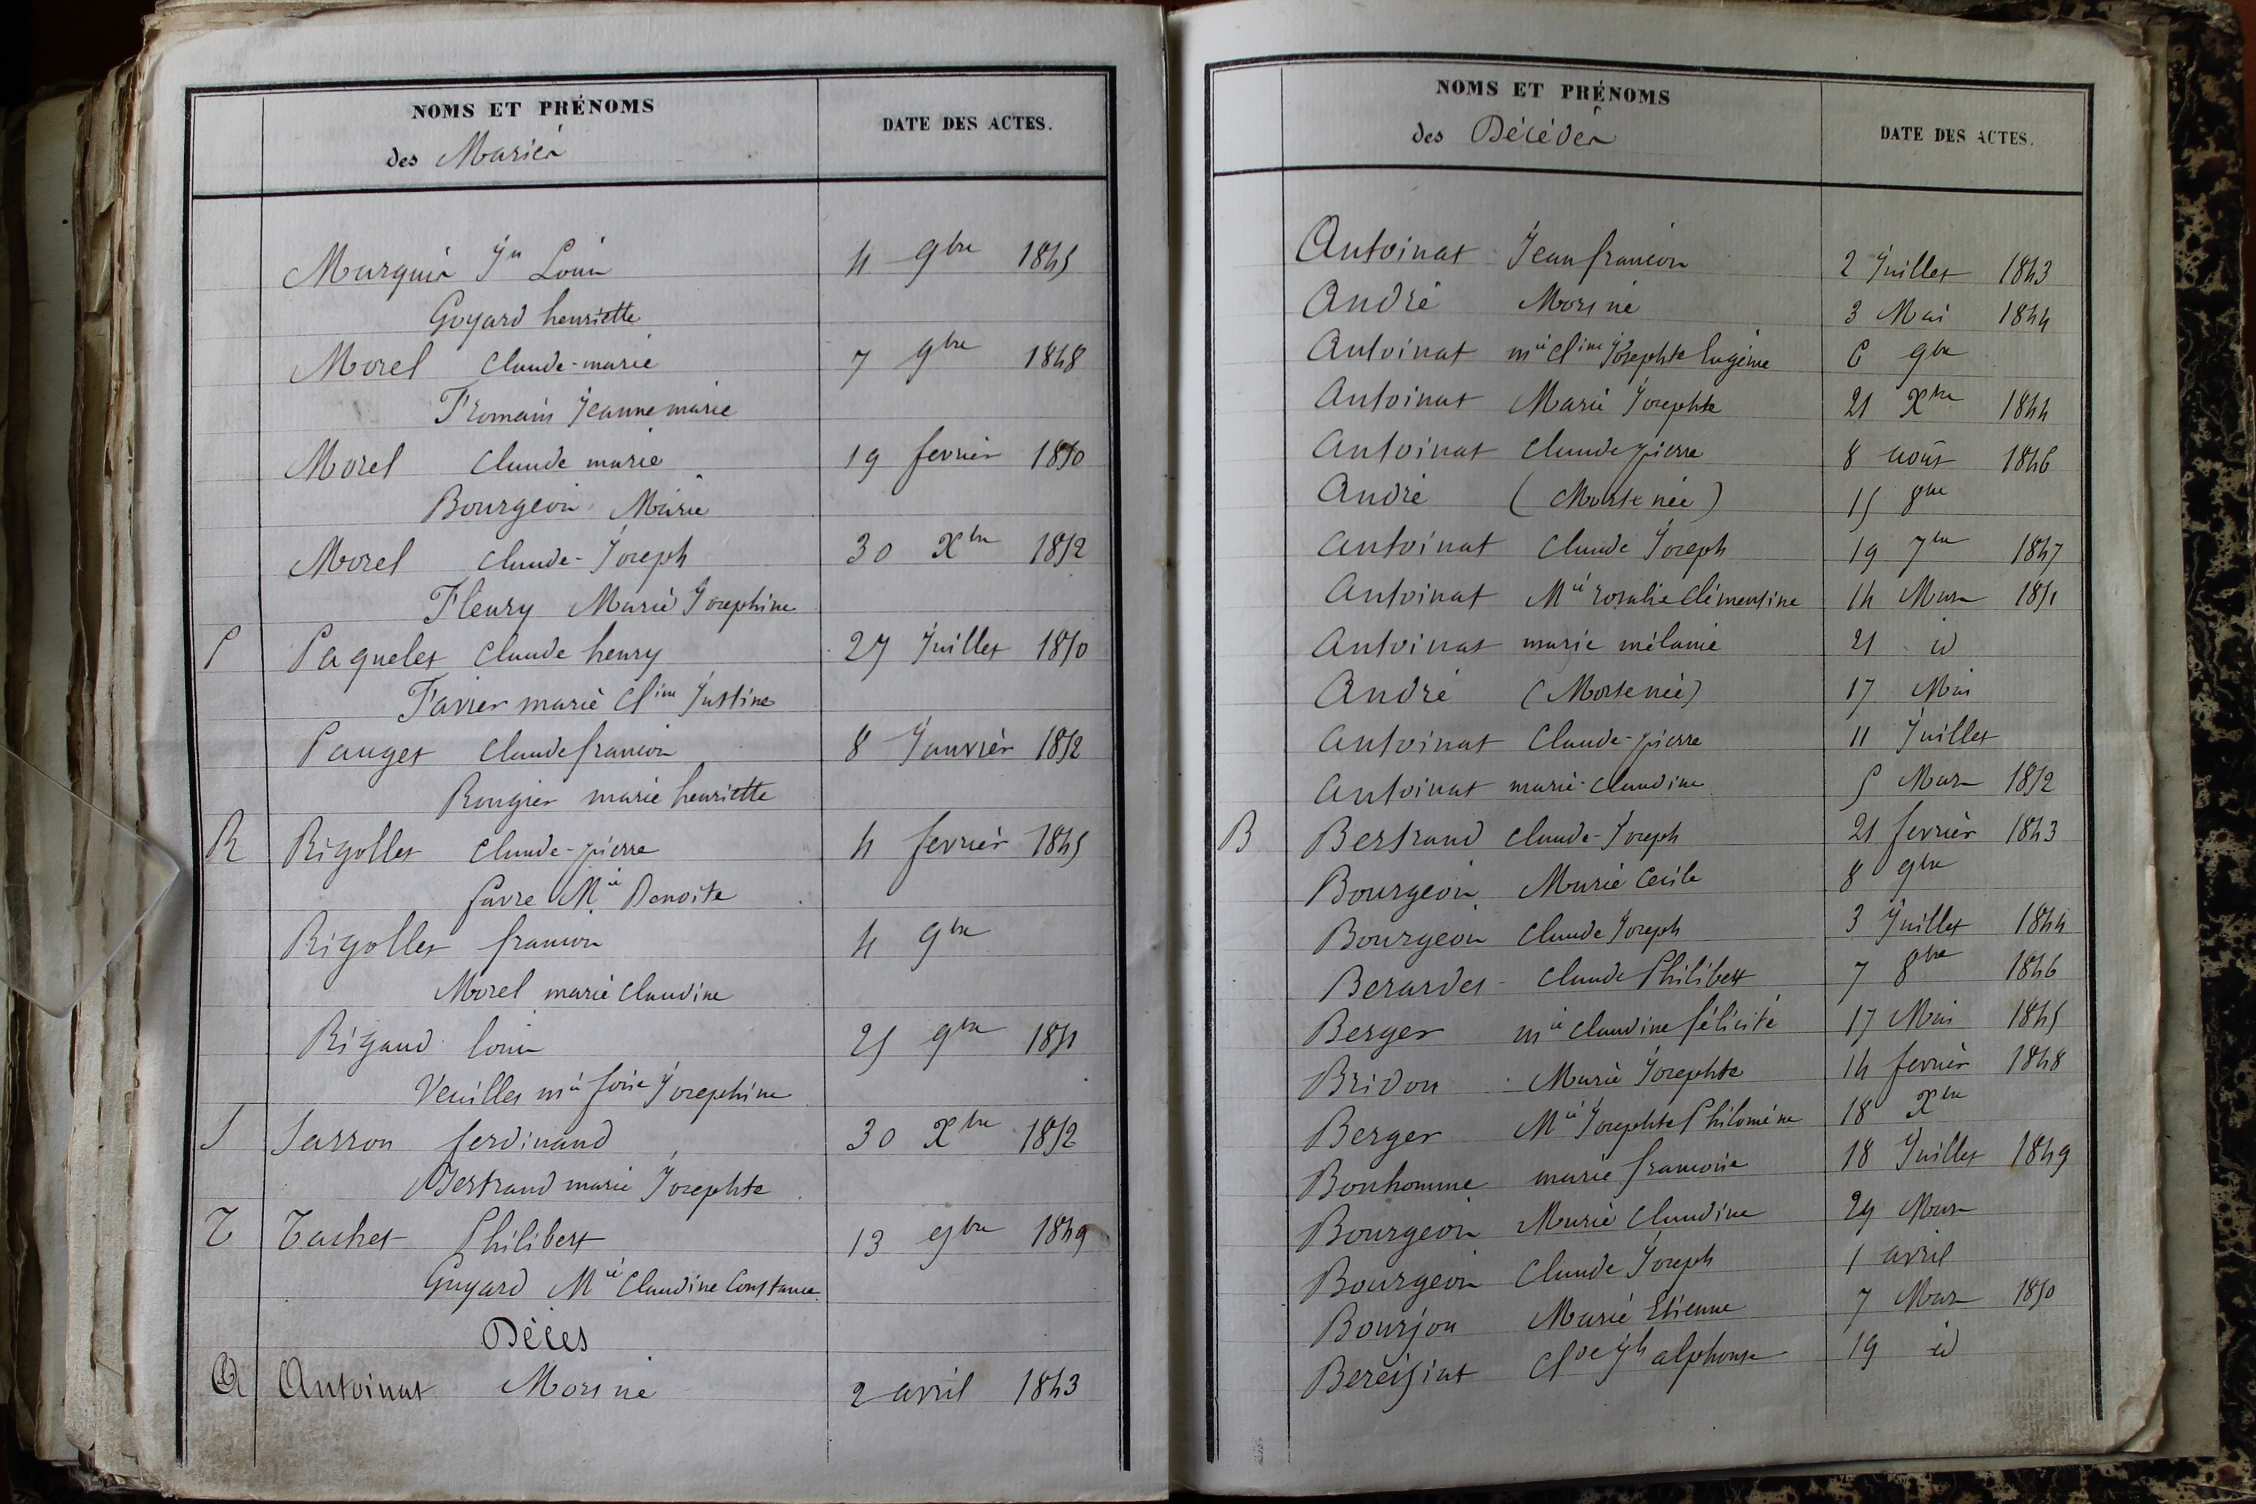 NOMS ET PRÉNOMS
des Mariés
DATE DES ACTES.
Marquis Jn Louis 4 9bre 1845
Goyard henriette
Morel Claude-marie 7 9bre 1848
Fromain Jeanne marie
Morel Claude marie 19 fevrier 1850
Bourgeois Marie
Morel Claude-Joseph 30 Xbre 1852
Fleury Marie Josephine
P Paquelet Claude henry 27 Juillet 1850
Favier marie Cline Justine
Pauget Claude francois 8 Janvier 1852
Rougier marie henriette
R Rigollet Claude-pierre 4 fevrier 1845
favre Mie Benoite
Rigollet francois 4 9bre
Morel marie Claudine
Rigaud louis 25 9bre 1851
Veuillet mie foise Josephine
S Sarron ferdinand 30 Xbre 1852
Bertrand marie Josephte
T Tachet Philibert 13 9bre 1849
Guyard Mie Claudine Constance
Décès
A Antoinat Mort né 2 avril 1843
NOMS ET PRÉNOMS
des Décédés
DATE DES ACTES.
Antoinat Jean francois 2 Juillet 1843
André Mort né 3 Mai 1844
Antoinat mie Cline Josephte Eugénie 6 9bre
Antoinat Marie Josephte 21 Xbre 1844
Antoinat Claude pierre 8 août 1846
André (Morte née) 15 8bre
Antoinat Claude Joseph 19 7bre 1847
Antoinat Mie rosalie Clémentine 14 Mars 1851
Antoinat marie mélanie 21 id
André (Morte née) 17 Mai
Antoinat Claude-pierre 11 Juillet
Antoinat marie-Claudine 5 Mars 1852
B Bertrand Claude-Joseph 21 fevrier 1843
Bourgeois Marie Cecile 8 9bre
Bourgeois Claude Joseph 3 Juillet 1844
Berardet Claude Philibert 7 8bre 1846
Berger mie Claudine félicité 17 Mai 1845
Bridon Marie Josephte 14 fevrier 1848
Berger Mie Josephte Philomène 18 Xbre
Bonhomme marie francoise 18 Juillet 1849
Bourgeois Marie Claudine 29 Mars
Bourgeois Claude Joseph 1 avril
Bourjon Marie Etienne 7 Mars 1850
Cde Jph alphonse 19 id